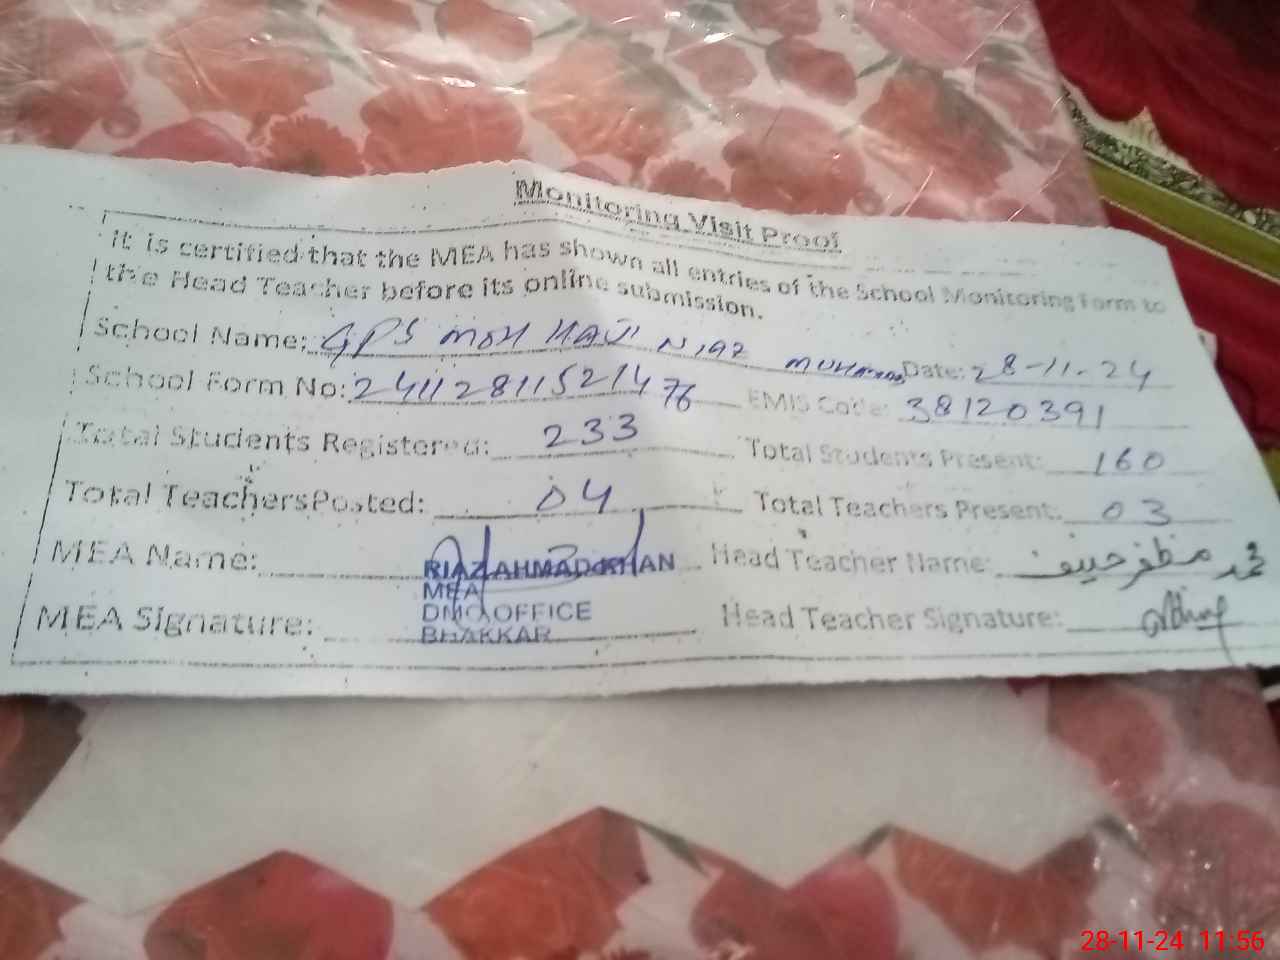 Monitoring Visit Proof
it is certified that the MEA has shown all entries of the School Monitoring Form to
the Head Teacher before its online submission.
School Name: GPS MOH HAJI NIAZ MUHAMMAD Date: 28-11-24
School Form No: 24112811521476 EMIS Code: 38120391
Total Students Registered: 233 Total Students Present: 160
Total Teachers Posted: 04 Total Teachers Present: 03
MEA Name: RIAZ AHMAD KHAN Head Teacher Name: محمد مظفر حنیف
MEA
MEA Signature: DMO OFFICE Head Teacher Signature:
BHAKKAR
28-11-24 11:56